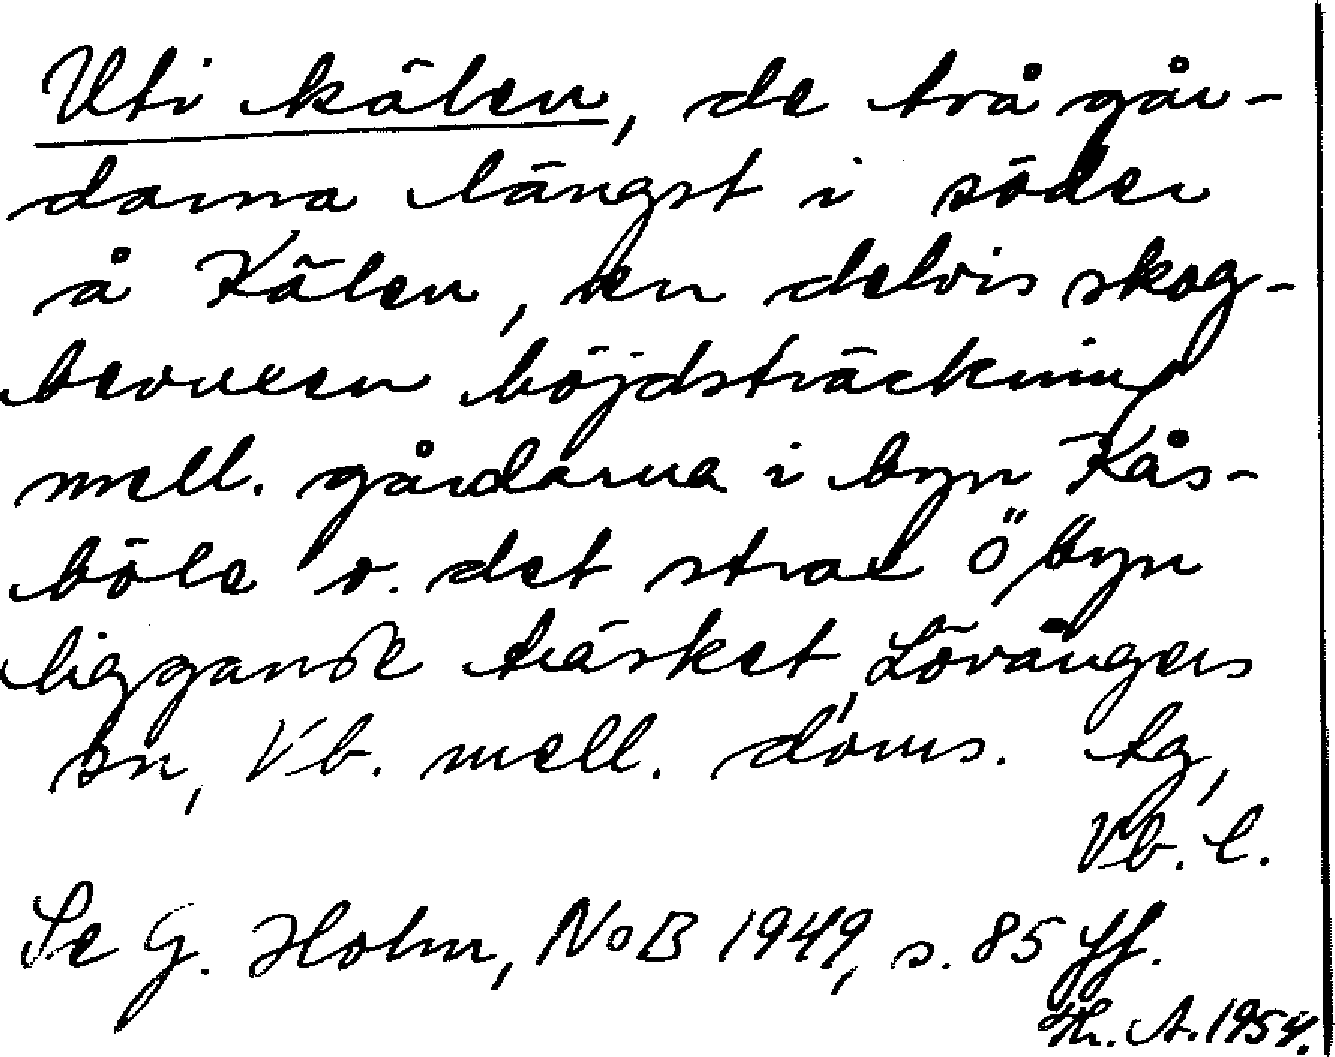 Uti kälen, de två går-
darna längst i söder
å Kälen, en delvis skog-
bevuxen höjdsträckning
mell. gårdarna i byn Kås-
böle o. det strax Ö byn
liggande träsket, Lövångers
sn, Vb. mell. doms. tg,
Vb. l.
Se G. Holm, NoB 1949, s. 85 ff.
Th. A. 1954.